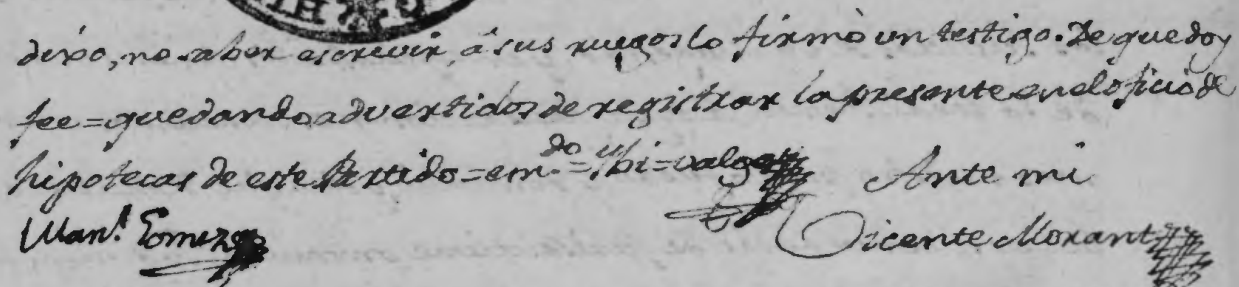 dixo, no saber escrevir, â sus ruegos lo firmò un testigo. De que doy
fee=quedando advertidos de registrar la presente en el oficio de
hipotecas de este Partido=em.do= bi=valga
Ante mi
Man.l Gomez
Vicente Morant